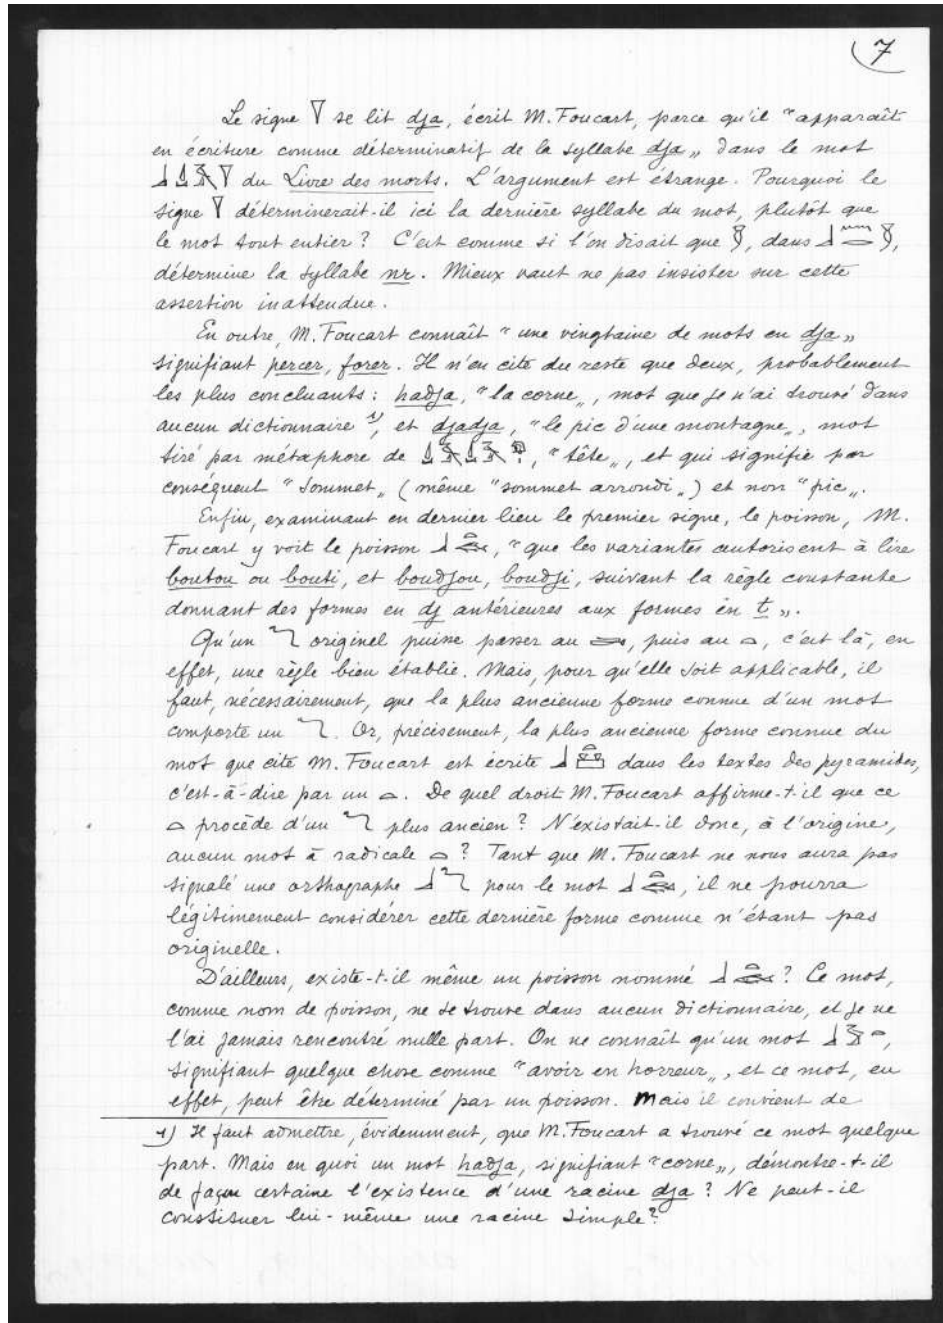 7
Le signe se lit dja, écrit M. Foucart, parce qu'il "apparaît
en écriture comme déterminatif de la syllabe dja„ dans le mot
du Livre des morts. L'argument est étrange. Pourquoi le
signe déterminerait-il ici la dernière syllabe du mot, plutôt que
le mot tout entier ? C'est comme si l'on disait que , dans ,
détermine la syllabe nr. Mieux vaut ne pas insister sur cette
assertion inattendue.
En outre, M. Foucart connaît "une vingtaine de mots en dja„
signifiant percer, forer. Il n'en cite du reste que deux, probablement
les plus concluants : hadja, "la corne„, mot que je n'ai trouvé dans
aucun dictionnaire 1), et djadja, "le pic d'une montagne„, mot
tiré par métaphore de , "tête„, et qui signifie par
conséquent "sommet„ (même "sommet arrondi„) et non "pic„.
Enfin, examinant en dernier lieu le premier signe, le poisson, M.
Foucart y voit le poisson , "que les variantes autorisent à lire
boutou ou bouti, et boudjou, boudji, suivant la règle constante
donnant des formes en dj antérieures aux formes en t„.
Qu'un originel puisse passer au , puis au , c'est là, en
effet, une règle bien établie. Mais, pour qu'elle soit applicable, il
faut, nécessairement, que la plus ancienne forme connue d'un mot
comporte un . Or, précisement, la plus ancienne forme connue du
mot que cite M. Foucart est écrite dans les textes des pyramides,
c'est-à-dire par un . De quel droit M. Foucart affirme-t-il que ce
procède d'un plus ancien ? N'existait-il donc, à l'origine,
aucun mot à radicale ? Tant que M. Foucart ne nous aura pas
signalé une orthographe pour le mot , il ne pourra
légitimement considérer cette dernière forme comme n'étant pas
originelle.
D'ailleurs, existe-t-il même un poisson nommé ? Ce mot,
comme nom de poisson, ne se trouve dans aucun dictionnaire, et je ne
l'ai jamais rencontré nulle part. On ne connaît qu'un mot ,
signifiant quelque chose comme "avoir en horreur„, et ce mot, en
effet, peut être déterminé par un poisson. Mais il convient de
1) Il faut admettre, évidemment, que M. Foucart a trouvé ce mot quelque
part. Mais en quoi un mot hadja, signifiant "corne„, démontre-t-il
de façon certaine l'existence d'une racine dja ? Ne peut-il
constituer lui-même une racine simple ?